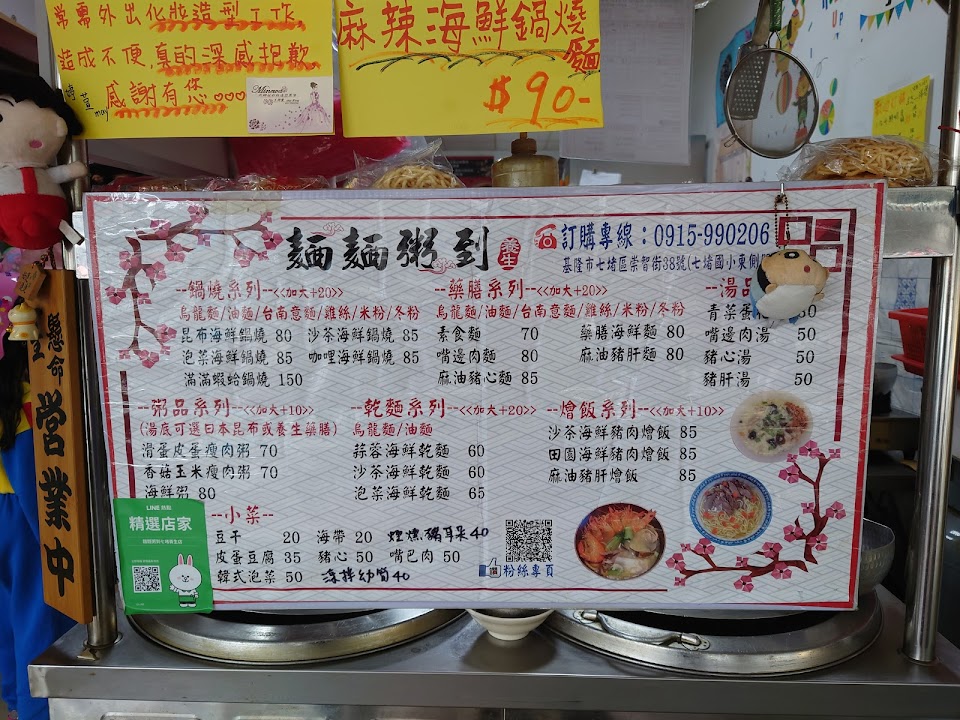 常需外出化妝造型工作,
造成不便,真的深感抱歉,
感謝有您
麻辣海鮮鍋燒
麵
$90-
麵麵粥到
養生
訂購專線：0915-990206
基隆市七堵區崇智街38號(七堵國小東側
--鍋燒系列--<<加大+20>>
烏龍麵/油麵/台南意麵/雞絲/米粉/冬粉
昆布海鮮鍋燒 80 沙茶海鮮鍋燒 85
泡菜海鮮鍋燒 85 咖哩海鮮鍋燒 85
滿滿蝦蛤鍋燒 150
--藥膳系列--<<加大+20>>
烏龍麵/油麵/台南意麵/雞絲/米粉/冬粉
素食麵 70 藥膳海鮮麵 80
嘴邊肉麵 80 麻油豬肝麵 80
麻油豬心麵 85
--湯品
青菜蛋
嘴邊肉湯 50
豬心湯 50
豬肝湯 50
--粥品系列--<<加大+10>>
(湯底可選日本昆布或養生藥膳)
滑蛋皮蛋瘦肉粥 70
香菇玉米瘦肉粥 70
海鮮粥 80
--乾麵系列--<<加大+20>>
烏龍麵/油麵
蒜蓉海鮮乾麵 60
沙茶海鮮乾麵 60
泡菜海鮮乾麵 65
--燴飯系列--<<加大+10>>
沙茶海鮮豬肉燴飯 85
田園海鮮豬肉燴飯 85
麻油豬肝燴飯 85
--小菜--
豆干 20 海帶 20 煙燻豬耳朵40
皮蛋豆腐 35 豬心 50 嘴巴肉 50
韓式泡菜 50 涼拌幼筍40
粉絲專頁
精選店家
懸命
営業中